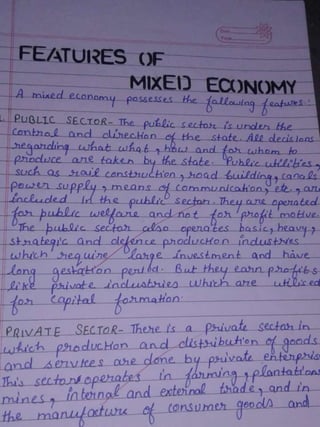 FEATURES OF
MIXED ECONOMY
A mixed economy possesses the following features:
PUBLIC SECTOR- The public sector is under the
control and direction of the state. All decisions
regarding what what, how and for whom to
produce are taken by the state. Public utilities,
such as rail construction, road building, canals
power supply, means of communication, etc, are
included in the public sector. They are operated
for public welfare and not for profit motive.
The public sector also operates basic, heavy,
strategic and defence production industries
which require large investment and have
long gestation period. But they earn profits
like private industries which are utilised
for capital formation.
PRIVATE SECTOR- There is a private sector in
which production and distribution of goods
and services are done by private enterprise
This sectors operates in farming, plantations
mines, internal and external trade, and in
the manufacture of consumer goods and